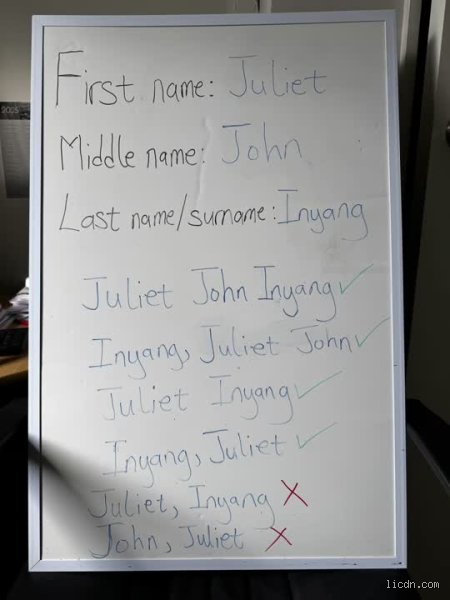 First name: Juliet
Middle name: John
Last name/surname: Inyang
Juliet John Inyang ✓
Inyang, Juliet John ✓
Juliet Inyang ✓
Inyang, Juliet ✓
Juliet, Inyang X
John, Juliet X
2025
licdn.com